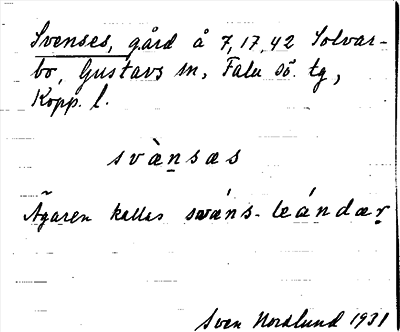 Svenses, gård å 7,17,42 Solvar-
bo, Gustavs sn, Falu sö. tg,
Kopp. l.
svàn̲sas
Ägaren kallas sváns-leándaṛ
Sven Nordlund 1931